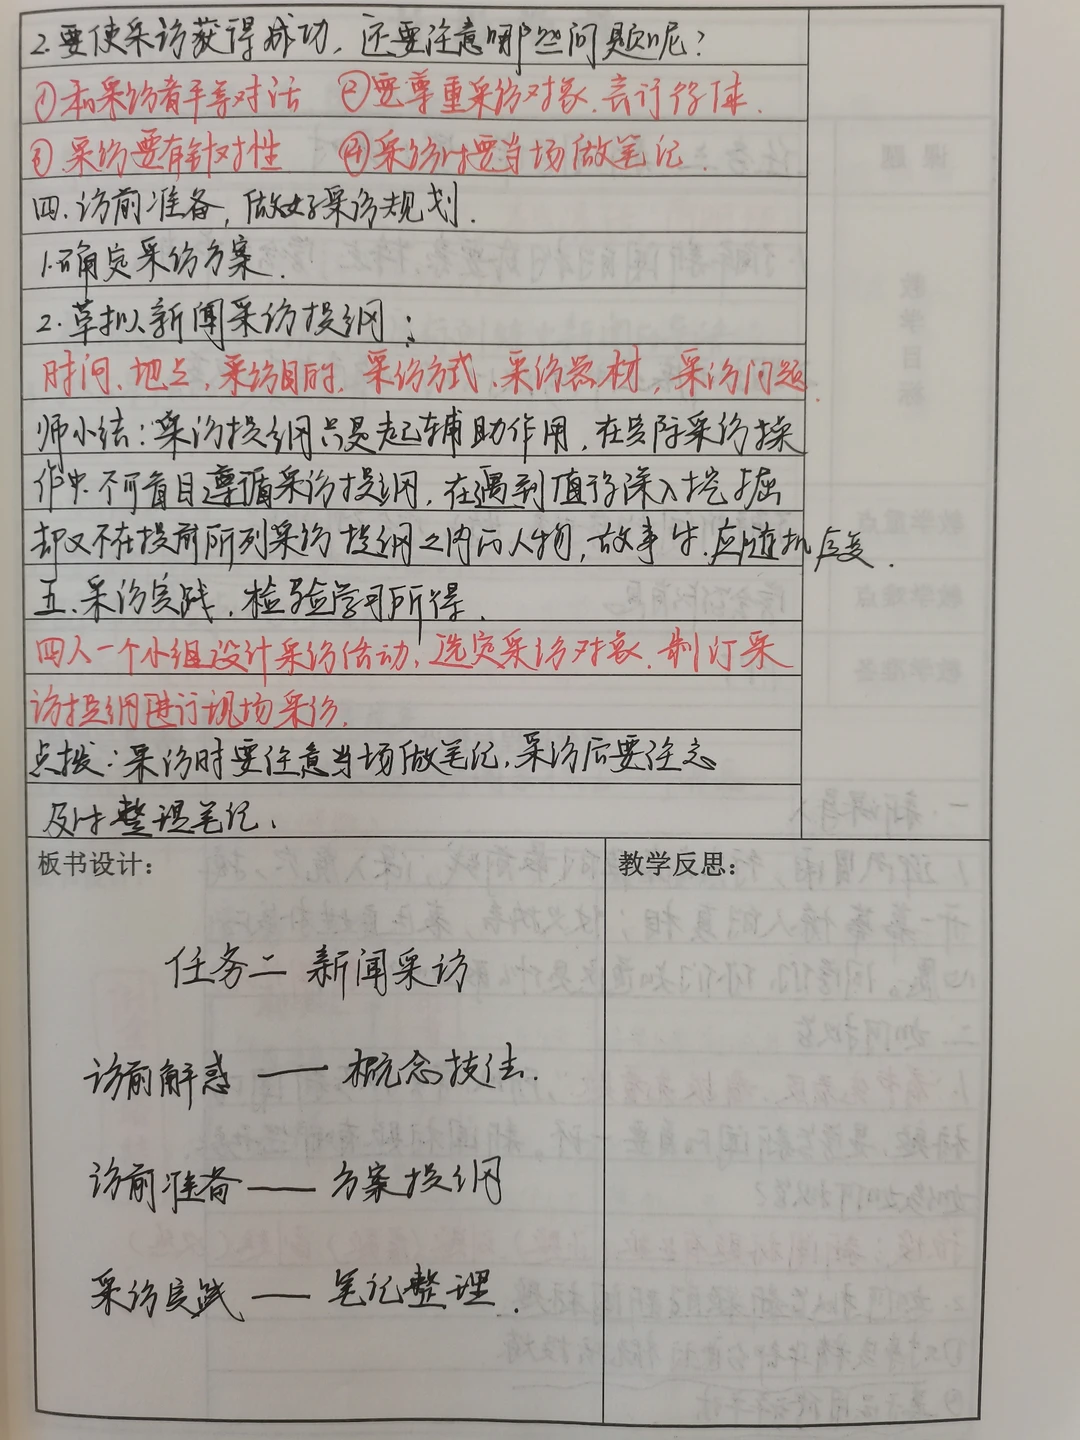 2.要使采访获得成功，还要注意哪些问题呢？
①和采访者平等对话 ②要尊重采访对象、言行得体.
③采访要有针对性 ④采访时要当场做笔记
四.访前准备，做好采访规划.
1.确定采访方案.
2.草拟新闻采访提纲：
时间、地点，采访目的，采访方式、采访器材，采访问题.
师小结：采访提纲只是起辅助作用，在实际采访操
作中.不可盲目遵循采访提纲，在遇到值得深入挖掘
却又不在提前所列采访提纲之内的人物，故事时.应随机应变.
五.采访实践，检验学习所得.
四人一个小组设计采访活动，选定采访对象.制订采
访提纲进行现场采访.
点拨：采访时要注意当场做笔记，采访后要注意
及时整理笔记.
板书设计：
任务二 新闻采访
访前解惑——概念技法.
访前准备——方案提纲
采访实践——笔记整理.
教学反思：